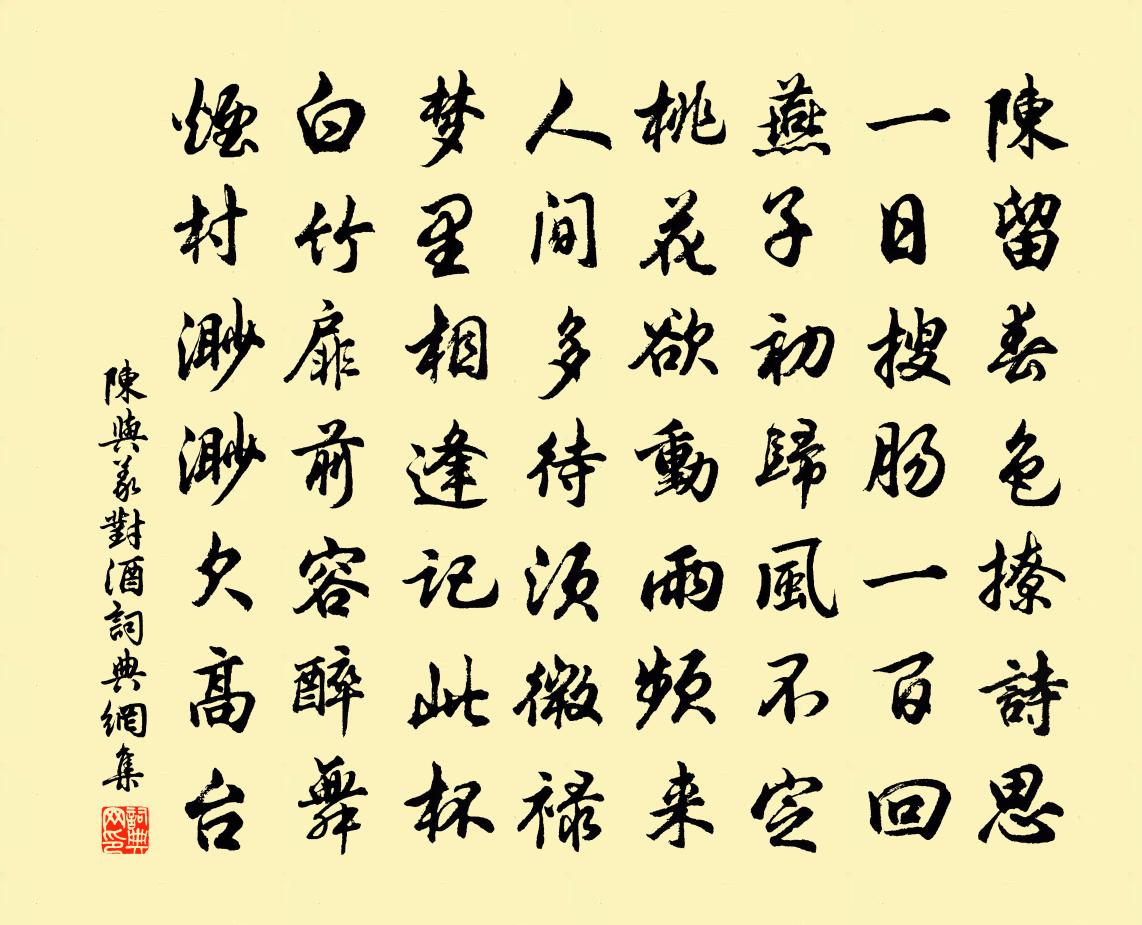 陳留春色撩詩思
一日搜肠一百回
燕子初歸風不定
桃花欲動雨频来
人间多待须微禄
梦里相逢记此杯
白竹扉前容醉舞
煙村渺渺欠高台
陳與義對酒詞典網集
詞典網印